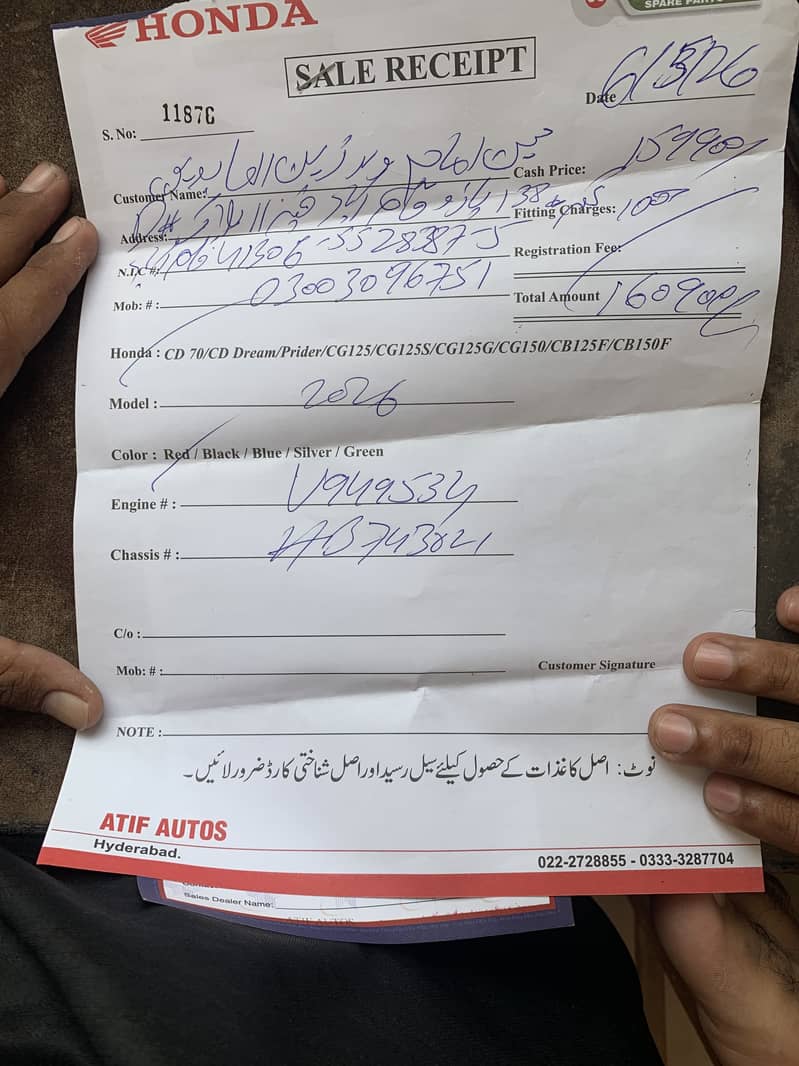 HONDA
SPARE PARTS
SALE RECEIPT
Date 6/5/26
S. No: 1187
Customer Name:
Cash Price: 159900/
Address: 138
Fitting Charges: 1000
N.I.C #: 41306-5528387-5
Registration Fee:
Mob: #: 03003096751
Total Amount 160900/
Honda : CD 70/CD Dream/Prider/CG125/CG125S/CG125G/CG150/CB125F/CB150F
Model : 2026
Color : Red / Black / Blue / Silver / Green
Engine # : V949534
Chassis # : AB743821
C/o :
Mob: # :
Customer Signature
NOTE :
نوٹ: اصل کاغذات کے حصول کیلئے سیل رسید اور اصل شناختی کارڈ ضرور لائیں۔
ATIF AUTOS
Hyderabad.
022-2728855 - 0333-3287704
Sales Dealer Name:
ATIF AUTOS